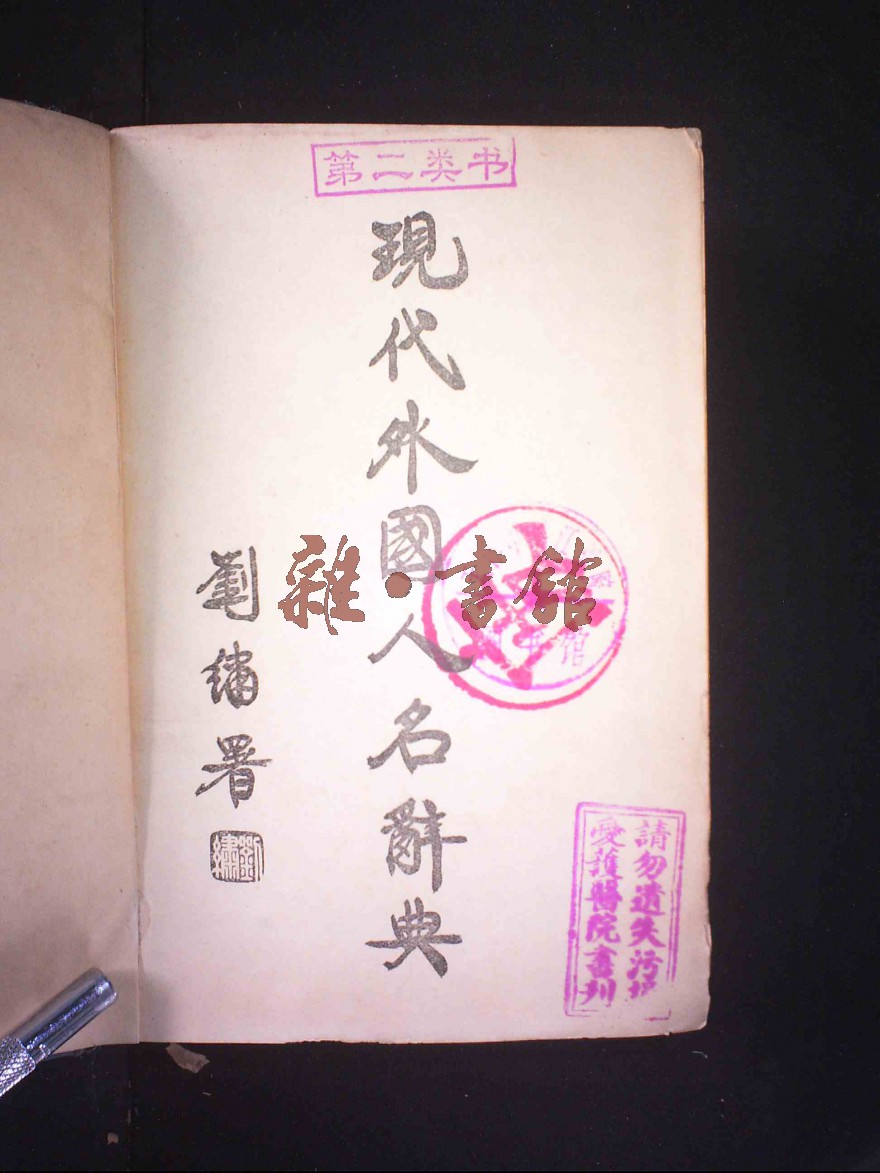 第二类书
現代外國人名辭典
劉繡署
劉繡
雜·書館
請勿遺失污
愛護醫院書刋